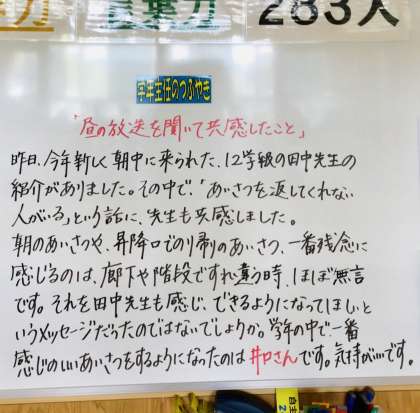 言葉力
283人
学年主任のつぶやき
「昼の放送を聞いて共感したこと」
昨日、今年新しく朝中に来られた、12学級の田中先生の
紹介がありました。その中で、「あいさつを返してくれない
人がいる」という話に、先生も共感しました。
朝のあいさつや、昇降口での帰りのあいさつ、一番残念に
感じるのは、廊下や階段ですれ違う時、ほぼ無言
です。それを田中先生も感じ、できるようになってほしいと
いうメッセージだったのではないでしょうか。学年の中で一番
感じのいいあいさつをするようになったのは 井口さんです。気持がいいです。